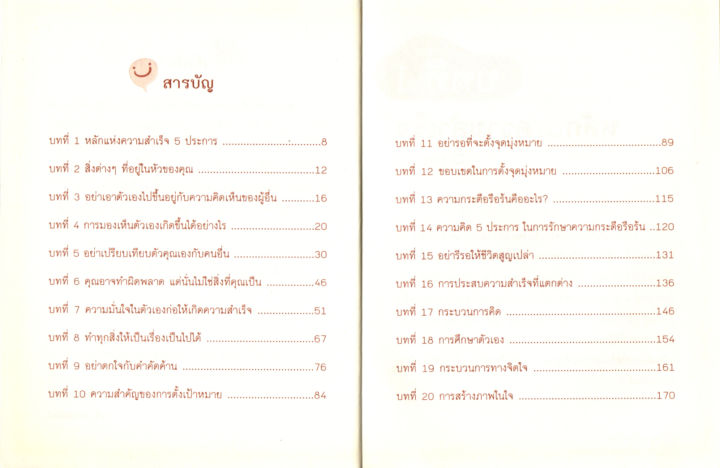 สารบัญ
บทที่ 1 หลักแห่งความสำเร็จ 5 ประการ ......................:.........8
บทที่ 2 สิ่งต่างๆ ที่อยู่ในหัวของคุณ .......................................12
บทที่ 3 อย่าเอาตัวเองไปขึ้นอยู่กับความคิดเห็นของผู้อื่น ...........16
บทที่ 4 การมองเห็นตัวเองเกิดขึ้นได้อย่างไร ............................20
บทที่ 5 อย่าเปรียบเทียบตัวคุณเองกับคนอื่น ...........................30
บทที่ 6 คุณอาจทำผิดพลาด แต่นั่นไม่ใช่สิ่งที่คุณเป็น ................46
บทที่ 7 ความมั่นใจในตัวเองก่อให้เกิดความสำเร็จ ...................51
บทที่ 8 ทำทุกสิ่งให้เป็นเรื่องเป็นไปได้ ....................................67
บทที่ 9 อย่าตกใจกับคำคัดค้าน ............................................76
บทที่ 10 ความสำคัญของการตั้งเป้าหมาย ..............................84
บทที่ 11 อย่ารอที่จะตั้งจุดมุ่งหมาย ......................................89
บทที่ 12 ขอบเขตในการตั้งจุดมุ่งหมาย .................................106
บทที่ 13 ความกระตือรือร้นคืออะไร? ...................................115
บทที่ 14 ความคิด 5 ประการ ในการรักษาความกระตือรือร้น ..120
บทที่ 15 อย่ารีรอให้ชีวิตสูญเปล่า .......................................131
บทที่ 16 การประสบความสำเร็จที่แตกต่าง ............................136
บทที่ 17 กระบวนการคิด ...................................................146
บทที่ 18 การศึกษาตัวเอง ..................................................154
บทที่ 19 กระบวนการทางจิตใจ ...........................................161
บทที่ 20 การสร้างภาพในใจ ...............................................170